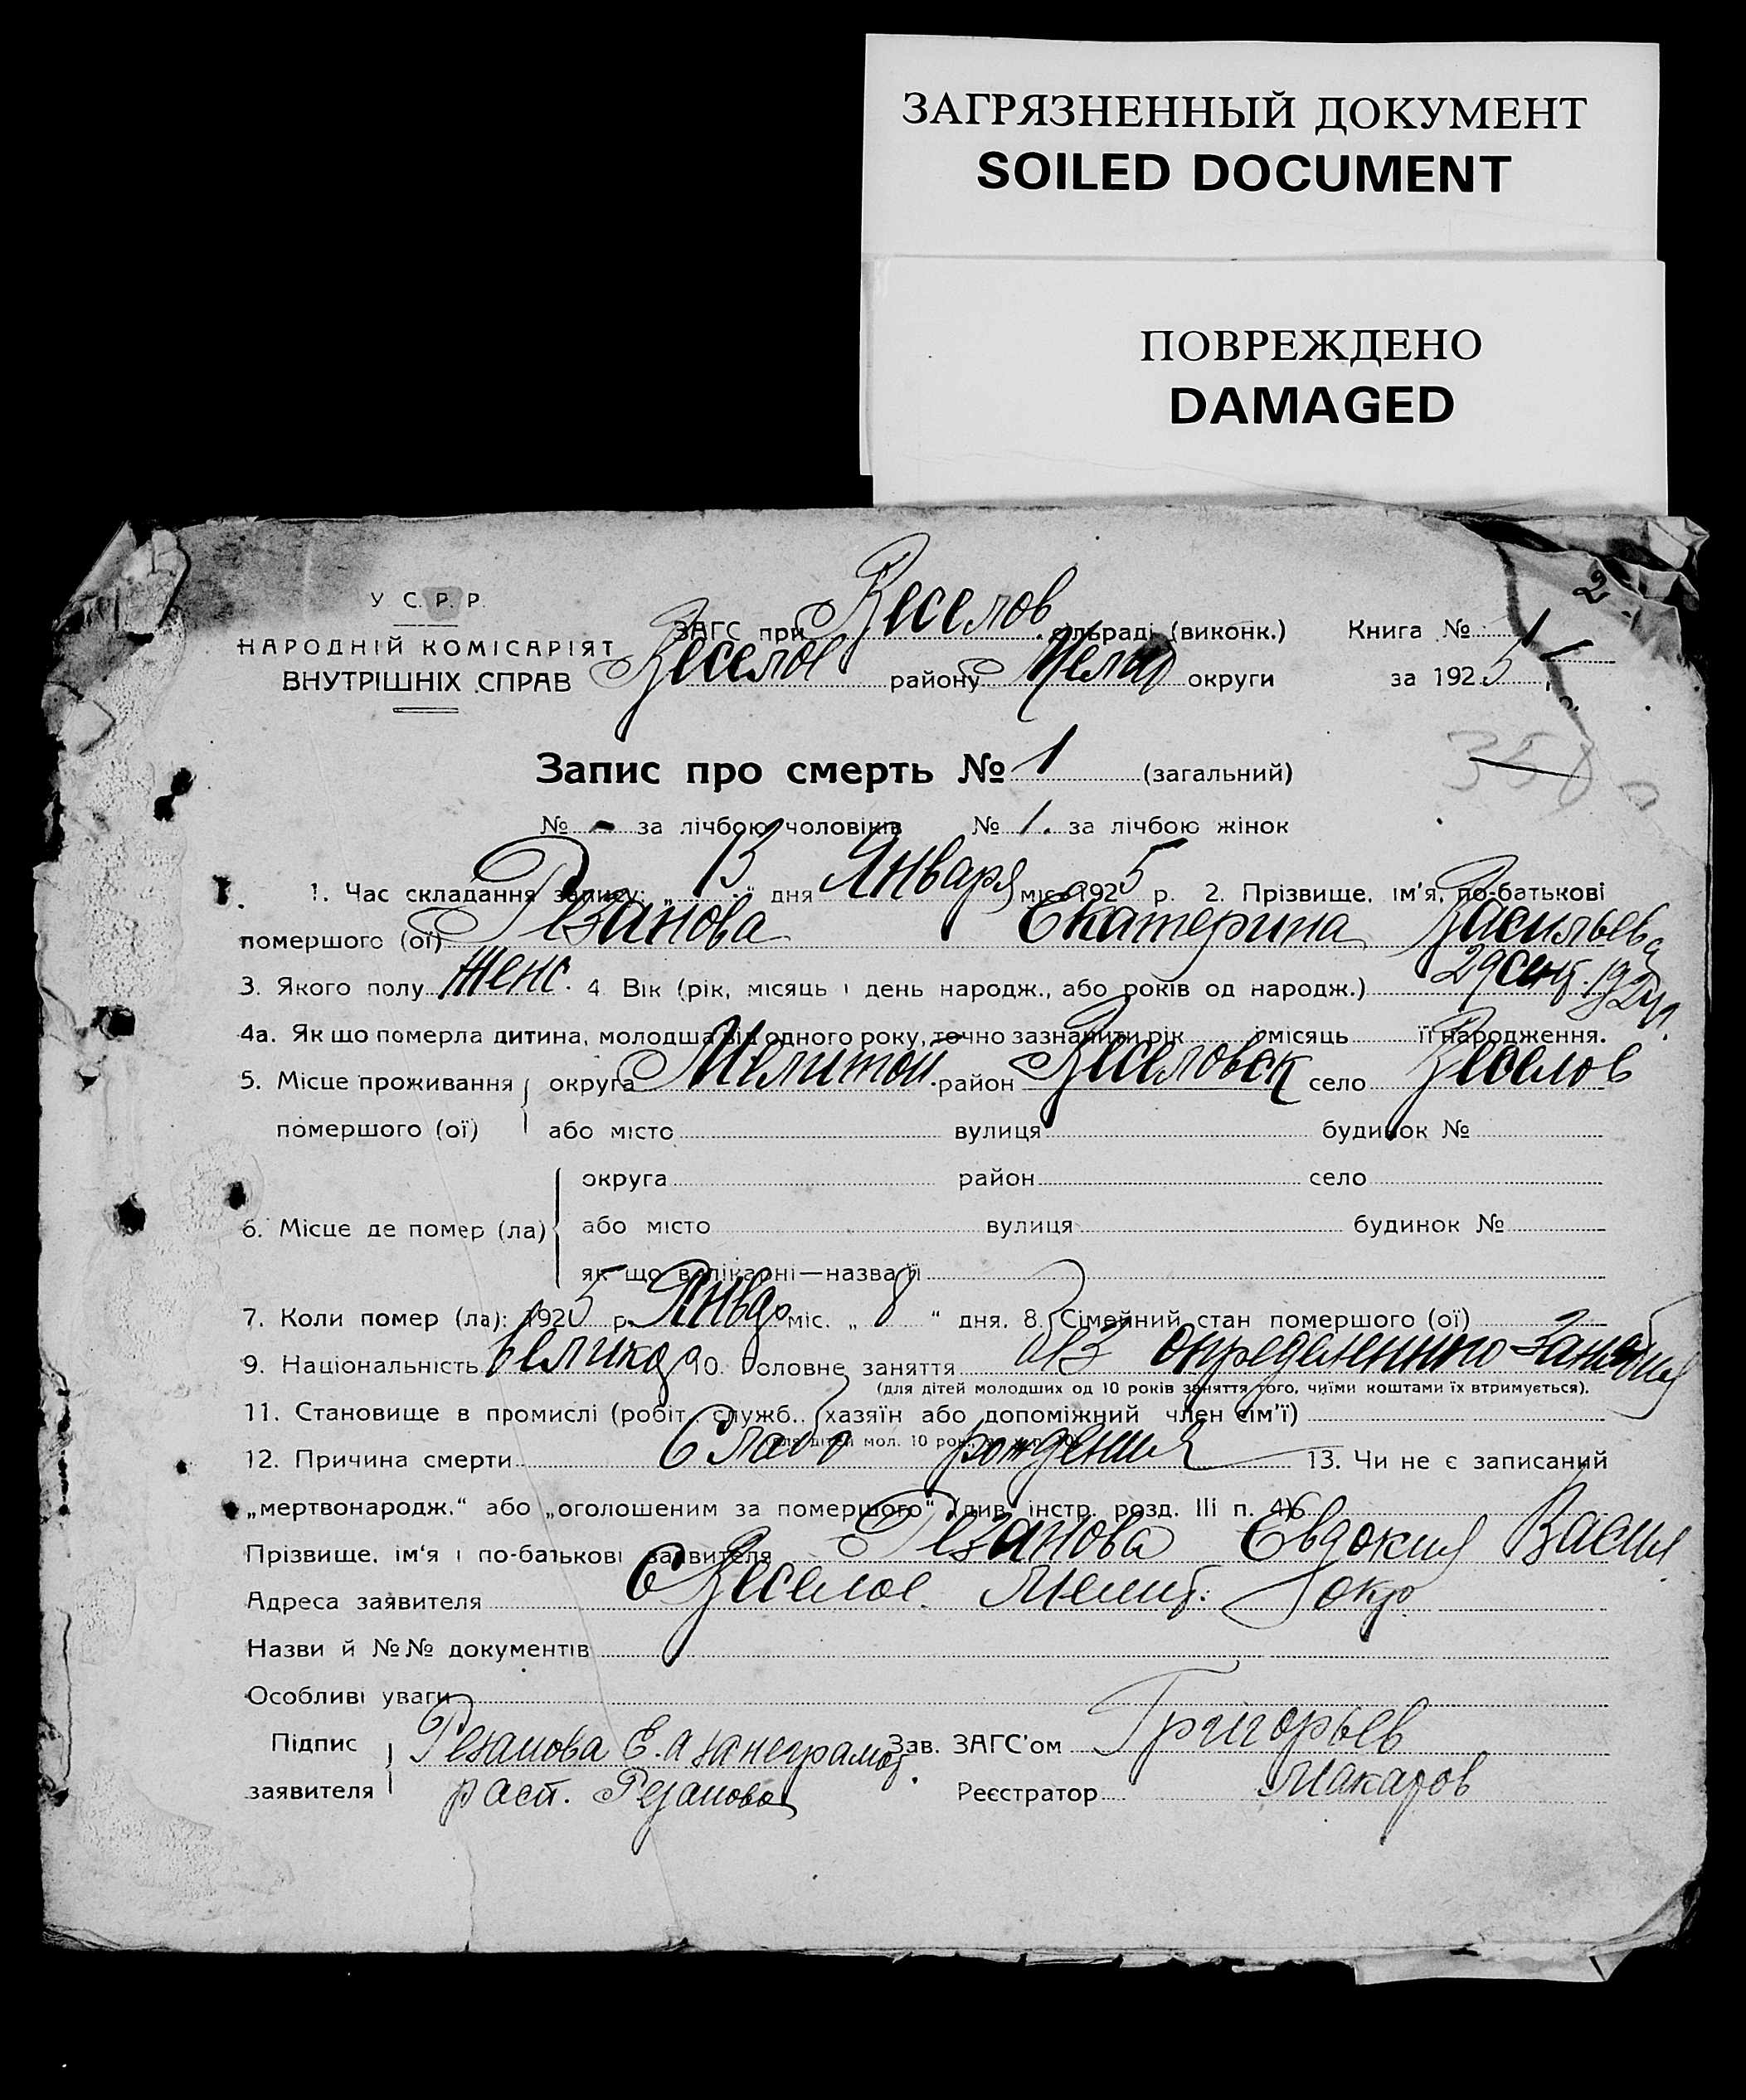 ЗАГРЯЗНЕННЫЙ ДОКУМЕНТ
SOILED DOCUMENT
ПОВРЕЖДЕНО
DAMAGED
2
У С. Р. Р.
НАРОДНІЙ КОМІСАРІЯТ
ВНУТРІШНІХ СПРАВ
ЗАГС при Веселов сільраді (виконк.) Книга № 1
Веселое району Мелит округи за 1925 р.
Запис про смерть № 1 (загальний)
358
№ - за лічбою чоловіків № 1. за лічбою жінок
1. Час складання запису: „13“ дня Января міс. 1925 р. 2. Прізвище, ім'я, по-батькові
помершого (ої) Резанова Екатерина Васильева
3. Якого полу Женс. 4. Вік (рік, місяць і день народж., або років од народж.) 29 сент. 1924 г.
4а. Як що померла дитина, молодша від одного року, точно зазначити рік і місяць її народження.
5. Місце проживання округа Мелитоп. район Веселовск село Веселов
помершого (ої) або місто вулиця будинок №
округа район село
6. Місце де помер (ла) або місто вулиця будинок №
як що в лікарні—назва її
7. Коли помер (ла): 1925 р. Январ міс. „ 8 “ дня. 8. Сімейний стан помершого (ої)
9. Національність Великор 10. Головне заняття определенного занятия
(для дітей молодших од 10 років заняття того, чиїми коштами їх втримується).
11. Становище в промислі (робіт., служб., хазяїн або допоміжний член сім'ї)
12. Причина смерти Слабо рождения 13. Чи не є записаний
„мертвонародж.“ або „оголошеним за помершого“ (див. інстр. розд. III п. 4)
Прізвище, ім'я і по-батькові заявителя Резанова Евдокия Васил
Адреса заявителя С Веселое. Мелит. окр.
Назви й №№ документів
Особливі уваги
Підпис Резанова Е. а за неграмот. Зав. ЗАГС'ом Григорьев
заявителя расп. Резанова Реєстратор Макаров